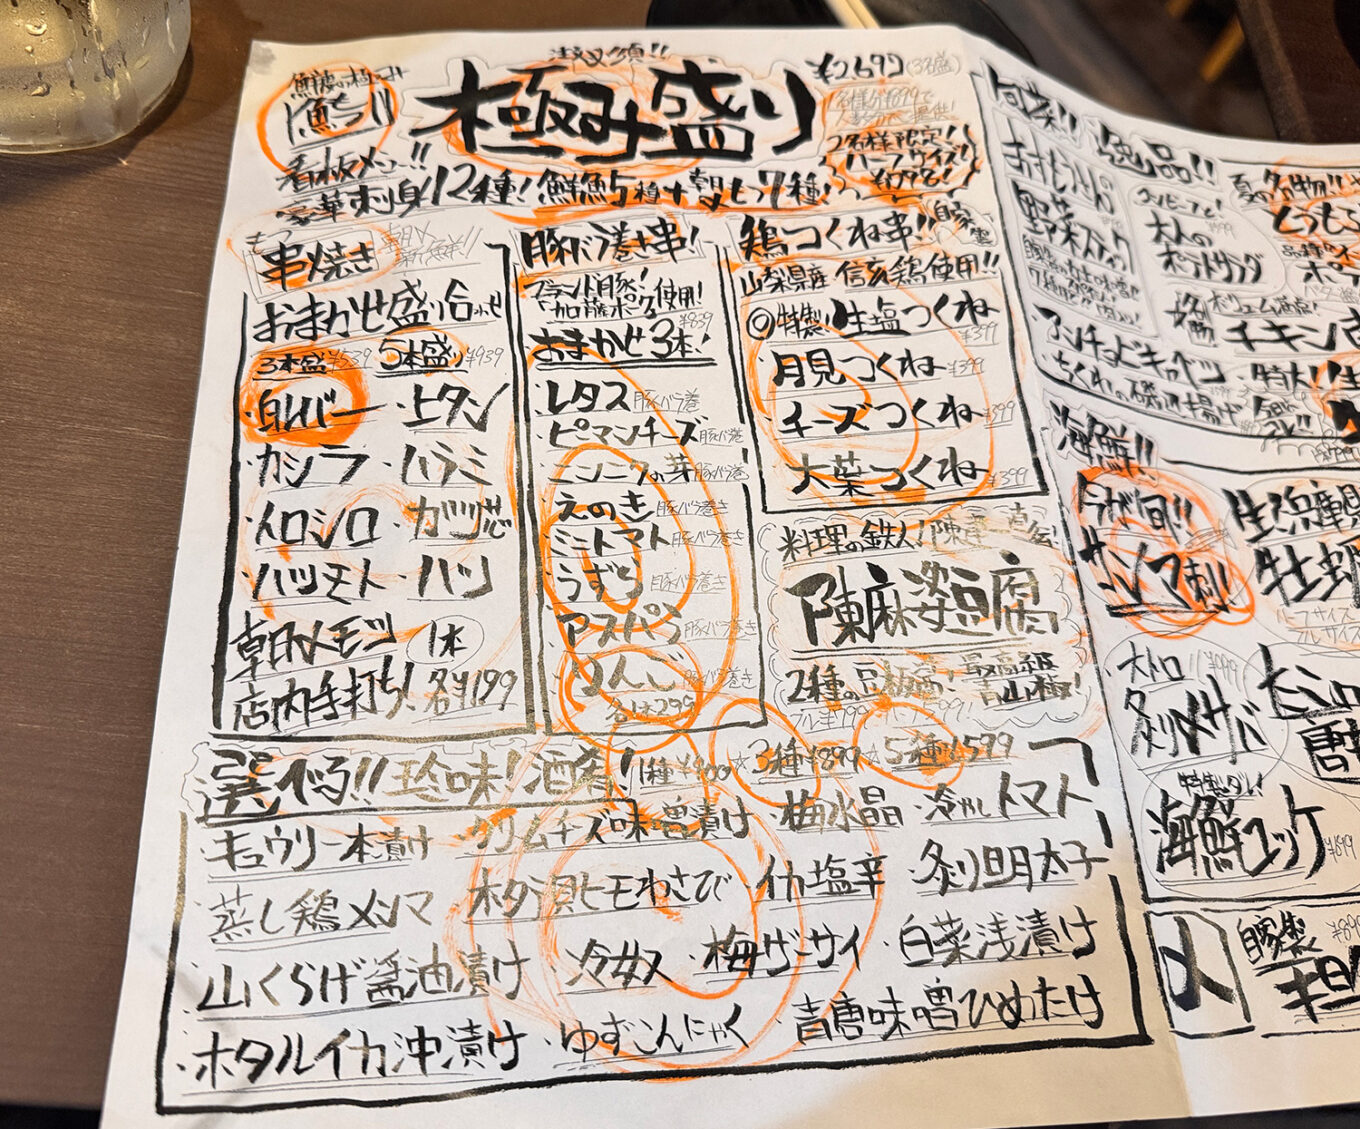 注文必須!!
極み盛り
¥2,692(3名盛)
魚ち!!
2名様限定!!
ハーフサイズ!
看板メニュー!!
豪華刺身12種! 鮮魚5種+朝〆7種!
もつ
串焼き
朝〆
新鮮!!
おまかせ盛り合わせ
3本盛¥539 5本盛り¥939
白レバー ・上タン
・カシラ ・ハラミ
・イロシロ ・ガツ芯
・ハツモト ・ハツ
朝〆モツ 1本
店内手打ち! 各¥199
豚バラ巻き串!
ブランド豚!
加藤ポーク使用!
¥839
おまかせ3本!
・レタス豚バラ巻
・ピーマンチーズ豚バラ巻
・ニンニクの芽豚バラ巻き
・えのき豚バラ巻き
・ミニトマト豚バラ巻き
・うずら豚バラ巻き
・アスパラ豚バラ巻き
・りんご豚バラ巻き
各¥299
鶏つくね串!! 自家製
山梨県産 信玄鶏使用!!
◎特製!生塩つくね¥399
・月見つくね¥399
・チーズつくね¥399
・大葉つくね¥399
料理の鉄人!陳建一直伝!
陳麻婆豆腐
2種の豆板醤!最高級
山椒!
選べる!! 珍味!酒肴! 1種¥400 ☆3種¥899 ☆5種¥1,599
・キュウリ一本漬け ・クリームチーズ味噌漬け ・梅水晶 ・冷やしトマト
・蒸し鶏メンマ ・ホタテ貝ヒモわさび ・イカ塩辛 ・炙り明太子
・山くらげ醤油漬け ・冷奴 ・梅ザーサイ ・白菜浅漬け
・ホタルイカ沖漬け ・ゆずこんにゃく ・青唐味噌ひめたけ
旬菜!! 逸品!!
おけもりさんの
野菜スティック
大人の
ポテトサラダ
アンチョビキャベツ
ちくわの磯辺揚げ
夏の名物!!
名物
チキン
特大!!
海鮮!!
今が旬!!
サンマ刺
大トロ
炙り〆サバ
特製ダレ!
海鮮ユッケ
〆
自家製